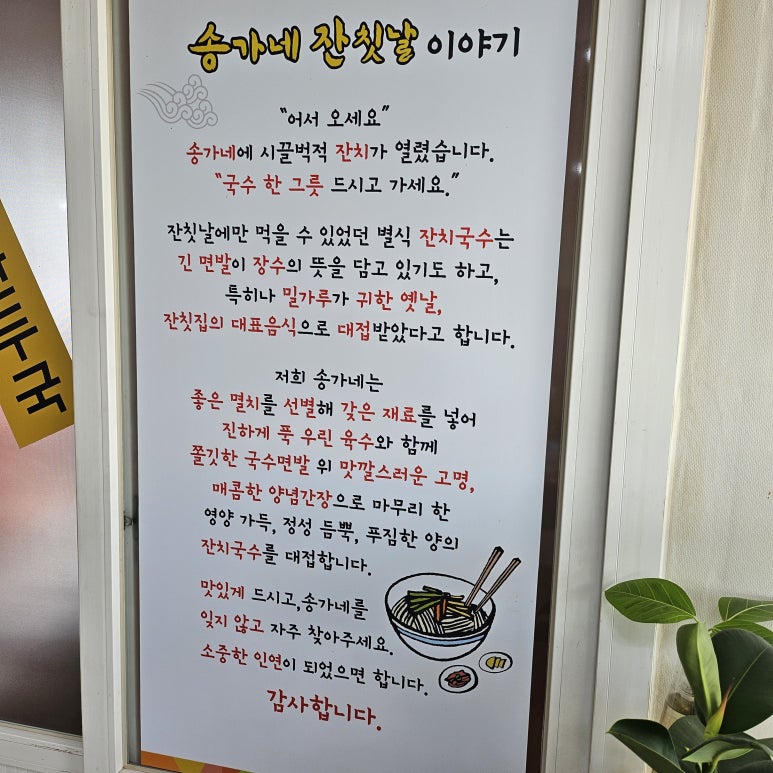 송가네 잔칫날 이야기
"어서 오세요"
송가네에 시끌벅적 잔치가 열렸습니다.
"국수 한 그릇 드시고 가세요."
잔칫날에만 먹을 수 있었던 별식 잔치국수는
긴 면발이 장수의 뜻을 담고 있기도 하고,
특히나 밀가루가 귀한 옛날,
잔칫집의 대표음식으로 대접받았다고 합니다.
저희 송가네는
좋은 멸치를 선별해 갖은 재료를 넣어
진하게 푹 우린 육수와 함께
쫄깃한 국수면발 위 맛깔스러운 고명,
매콤한 양념간장으로 마무리 한
영양 가득, 정성 듬뿍, 푸짐한 양의
잔치국수를 대접합니다.
맛있게 드시고,송가네를
잊지 않고 자주 찾아주세요.
소중한 인연이 되었으면 합니다.
감사합니다.